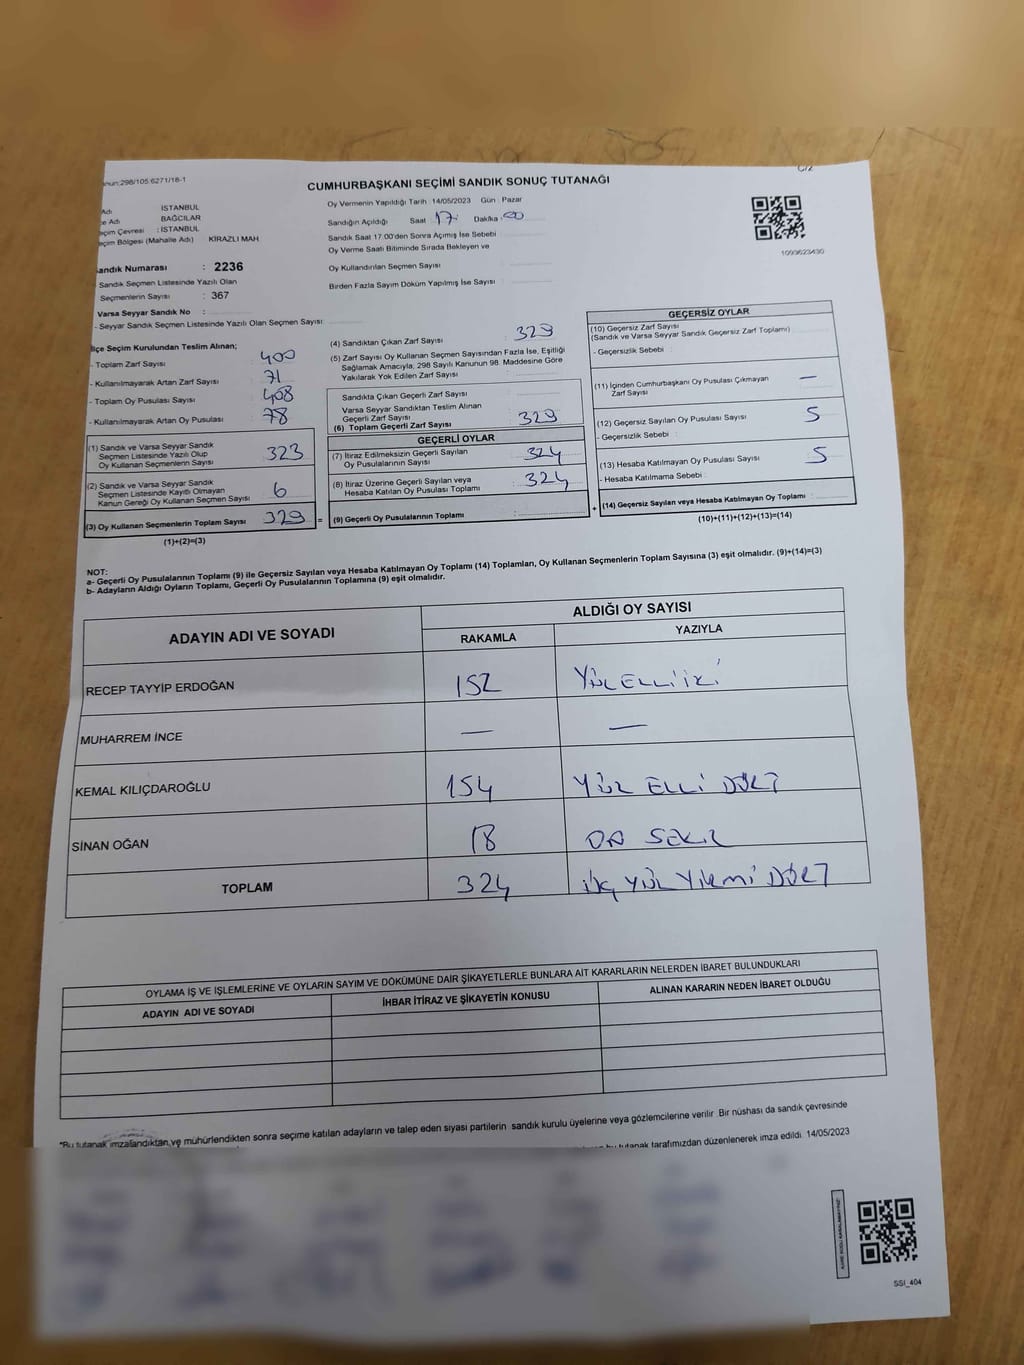 298/105.6271/18-1
C/2
CUMHURBAŞKANI SEÇİMİ SANDIK SONUÇ TUTANAĞI
Adı İSTANBUL
Adı BAĞCILAR
Çevresi : İSTANBUL
Bölgesi (Mahalle Adı) KİRAZLI MAH
Sandık Numarası : 2236
- Sandık Seçmen Listesinde Yazılı Olan
Seçmenlerin Sayısı : 367
Varsa Seyyar Sandık No :
- Seyyar Sandık Seçmen Listesinde Yazılı Olan Seçmen Sayısı:
Oy Vermenin Yapıldığı Tarih : 14/05/2023 Gün : Pazar
Sandığın Açıldığı Saat : 17 Dakika : 00
Sandık Saat 17.00'den Sonra Açımış İse Sebebi :
Oy Verme Saati Bitiminde Sırada Bekleyen ve
Oy Kullandırılan Seçmen Sayısı :
Birden Fazla Sayım Döküm Yapılmış İse Sayısı :
1093623430
İlçe Seçim Kurulundan Teslim Alınan;
- Toplam Zarf Sayısı : 400
- Kullanılmayarak Artan Zarf Sayısı : 71
- Toplam Oy Pusulası Sayısı : 408
- Kullanılmayarak Artan Oy Pusulası : 78
(1) Sandık ve Varsa Seyyar Sandık
Seçmen Listesinde Yazılı Olup
Oy Kullanan Seçmenlerin Sayısı : 323
(2) Sandık ve Varsa Seyyar Sandık
Seçmen Listesinde Kayıtlı Olmayan
Kanun Gereği Oy Kullanan Seçmen Sayısı : 6
(3) Oy Kullanan Seçmenlerin Toplam Sayısı : 329
(1)+(2)=(3)
=
(4) Sandıktan Çıkan Zarf Sayısı : 329
(5) Zarf Sayısı Oy Kullanan Seçmen Sayısından Fazla İse, Eşitliği
Sağlamak Amacıyla; 298 Sayılı Kanunun 98. Maddesine Göre
Yakılarak Yok Edilen Zarf Sayısı :
Sandıkta Çıkan Geçerli Zarf Sayısı :
Varsa Seyyar Sandıktan Teslim Alınan
Geçerli Zarf Sayısı :
(6) Toplam Geçerli Zarf Sayısı : 329
GEÇERLİ OYLAR
(7) İtiraz Edilmeksizin Geçerli Sayılan
Oy Pusulalarının Sayısı : 324
(8) İtiraz Üzerine Geçerli Sayılan veya
Hesaba Katılan Oy Pusulası Toplamı : 324
(9) Geçerli Oy Pusulalarının Toplamı :
+
GEÇERSİZ OYLAR
(10) Geçersiz Zarf Sayısı
(Sandık ve Varsa Seyyar Sandık Geçersiz Zarf Toplamı) :
- Geçersizlik Sebebi :
(11) İçinden Cumhurbaşkanı Oy Pusulası Çıkmayan
Zarf Sayısı : —
(12) Geçersiz Sayılan Oy Pusulası Sayısı : 5
- Geçersizlik Sebebi :
(13) Hesaba Katılmayan Oy Pusulası Sayısı : 5
- Hesaba Katılmama Sebebi :
(14) Geçersiz Sayılan veya Hesaba Katılmayan Oy Toplamı :
(10)+(11)+(12)+(13)=(14)
NOT:
a- Geçerli Oy Pusulalarının Toplamı (9) ile Geçersiz Sayılan veya Hesaba Katılmayan Oy Toplamı (14) Toplamları, Oy Kullanan Seçmenlerin Toplam Sayısına (3) eşit olmalıdır. (9)+(14)=(3)
b- Adayların Aldığı Oyların Toplamı, Geçerli Oy Pusulalarının Toplamına (9) eşit olmalıdır.
ADAYIN ADI VE SOYADI
ALDIĞI OY SAYISI
RAKAMLA YAZIYLA
RECEP TAYYİP ERDOĞAN 152 YÜZ ELLİ İKİ
MUHARREM İNCE — —
KEMAL KILIÇDAROĞLU 154 YÜZ ELLİ DÖRT
SİNAN OĞAN 18 ON SEKİZ
TOPLAM 324 ÜÇ YÜZ YİRMİ DÖRT
OYLAMA İŞ VE İŞLEMLERİNE VE OYLARIN SAYIM VE DÖKÜMÜNE DAİR ŞİKAYETLERLE BUNLARA AİT KARARLARIN NELERDEN İBARET BULUNDUKLARI
ADAYIN ADI VE SOYADI İHBAR İTİRAZ VE ŞİKAYETİN KONUSU ALINAN KARARIN NEDEN İBARET OLDUĞU
*Bu tutanak imzalandıktan ve mühürlendikten sonra seçime katılan adayların ve talep eden siyasi partilerin sandık kurulu üyelerine veya gözlemcilerine verilir. Bir nüshası da sandık çevresinde
bu tutanak tarafımızdan düzenlenerek imza edildi. 14/05/2023
SSI_404